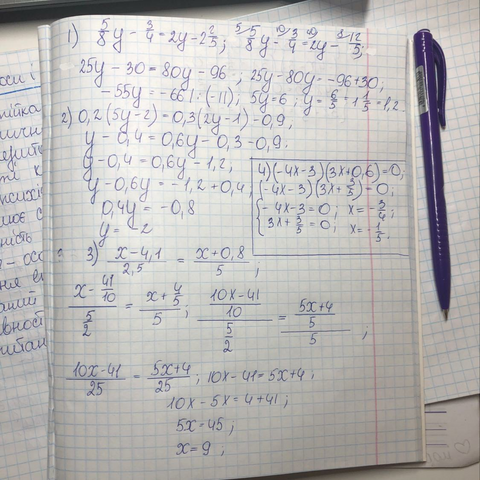 1) 5/8 y - 3/4 = 2y - 2 2/5; 5\ 5/8 y - 10\ 3/4 = 2y - 12/5;
25y - 30 = 80y - 96, 25y - 80y = -96 + 30;
-55y = -66 | : (-11); 5y = 6; y = 6/5 = 1 1/5 = 1,2.
2) 0,2(5y-2) = 0,3(2y-1) - 0,9,
y - 0,4 = 0,6y - 0,3 - 0,9.
y - 0,4 = 0,6y - 1,2,
y - 0,6y = -1,2 + 0,4,
0,4y = -0,8
y = -2
4) (-4x-3)(3x+0,6) = 0;
(-4x-3)(3x + 3/5) = 0;
-4x - 3 = 0; x = -3/4;
3x + 3/5 = 0; x = -1/5.
3) (x-4,1)/2,5 = (x+0,8)/5;
(x - 41/10)/(5/2) = (x + 4/5)/5; ((10x-41)/10)/(5/2) = ((5x+4)/5)/5;
(10x-41)/25 = (5x+4)/25; 10x - 41 = 5x + 4;
10x - 5x = 4 + 41;
5x = 45;
x = 9;